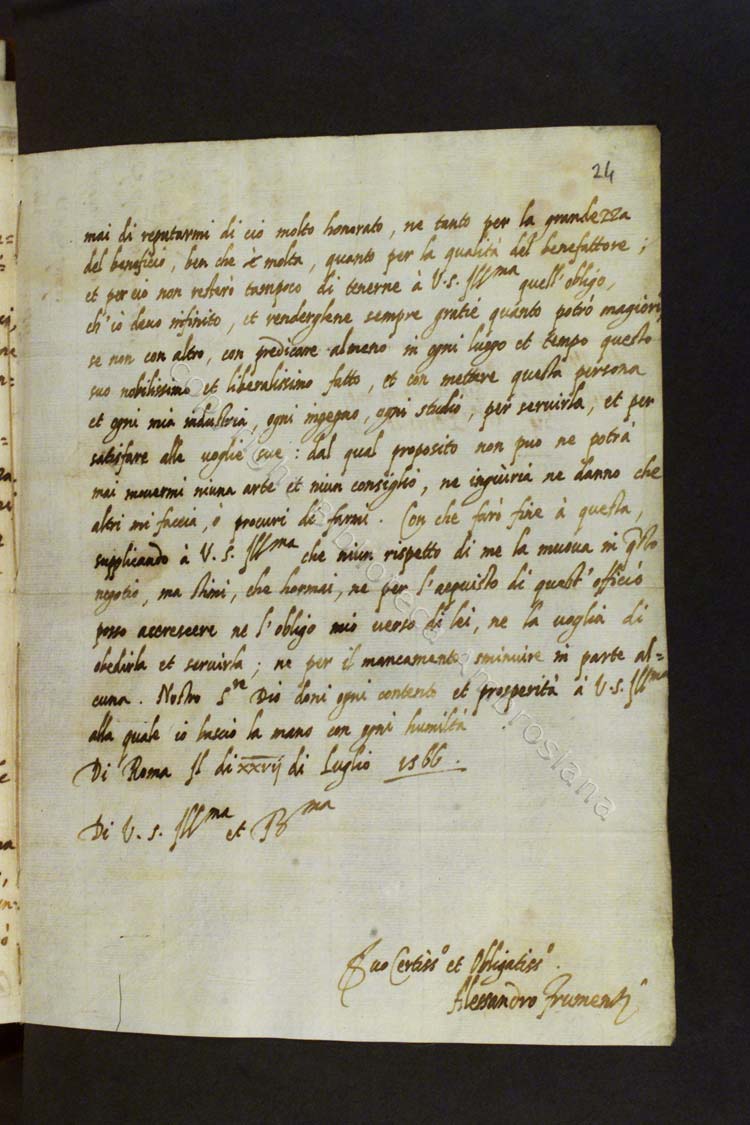 24
mai di reputarmi di ciò molto honorato, ne tanto per la grandezza
del beneficio, ben che è molta, quanto per la qualità del benefattore;
et perciò non restarò tampoco di tenerne à V. S. Ill.ma quell'obligo,
ch'iò deuo infinito, et renderglene sempre gratie quanto potrò magiori,
se non con altro, con predicare almeno in ogni luogo et tempo questo
suo nobilissimo et liberalissimo fatto, et con mettere questa persona
et ogni mia industria, ogni ingegno, ogni studio, per seruirla, et per
satisfare alle uoglie sue: dal qual proposito non può ne potrà
mai mouermi niuna arte et niun consiglio, ne ingiuria ne danno che
altri mi faccia, ò procuri di farmi. Con che farò fine à questa,
supplicando à V. S. Ill.ma che niun rispetto di me la muoua in q.sto
negotio, ma stimi, che hormai, ne per l'acquisto di quest'officio
posso accrescere ne l'obligo mio uerso di lei, ne la uoglia di
obedirla et seruirla; ne per il mancamento sminuire in parte al=
cuna. Nostro S.re Dio doni ogni contento et prosperità à V. S. Ill.ma
alla quale io bascio la mano con ogni humiltà
Di Roma Il di xxvij di Luglio 1566.
Di V. S. Ill.ma et R.ma
Suo Certiss.o et Obligatiss.o
Alessandro Frumenti